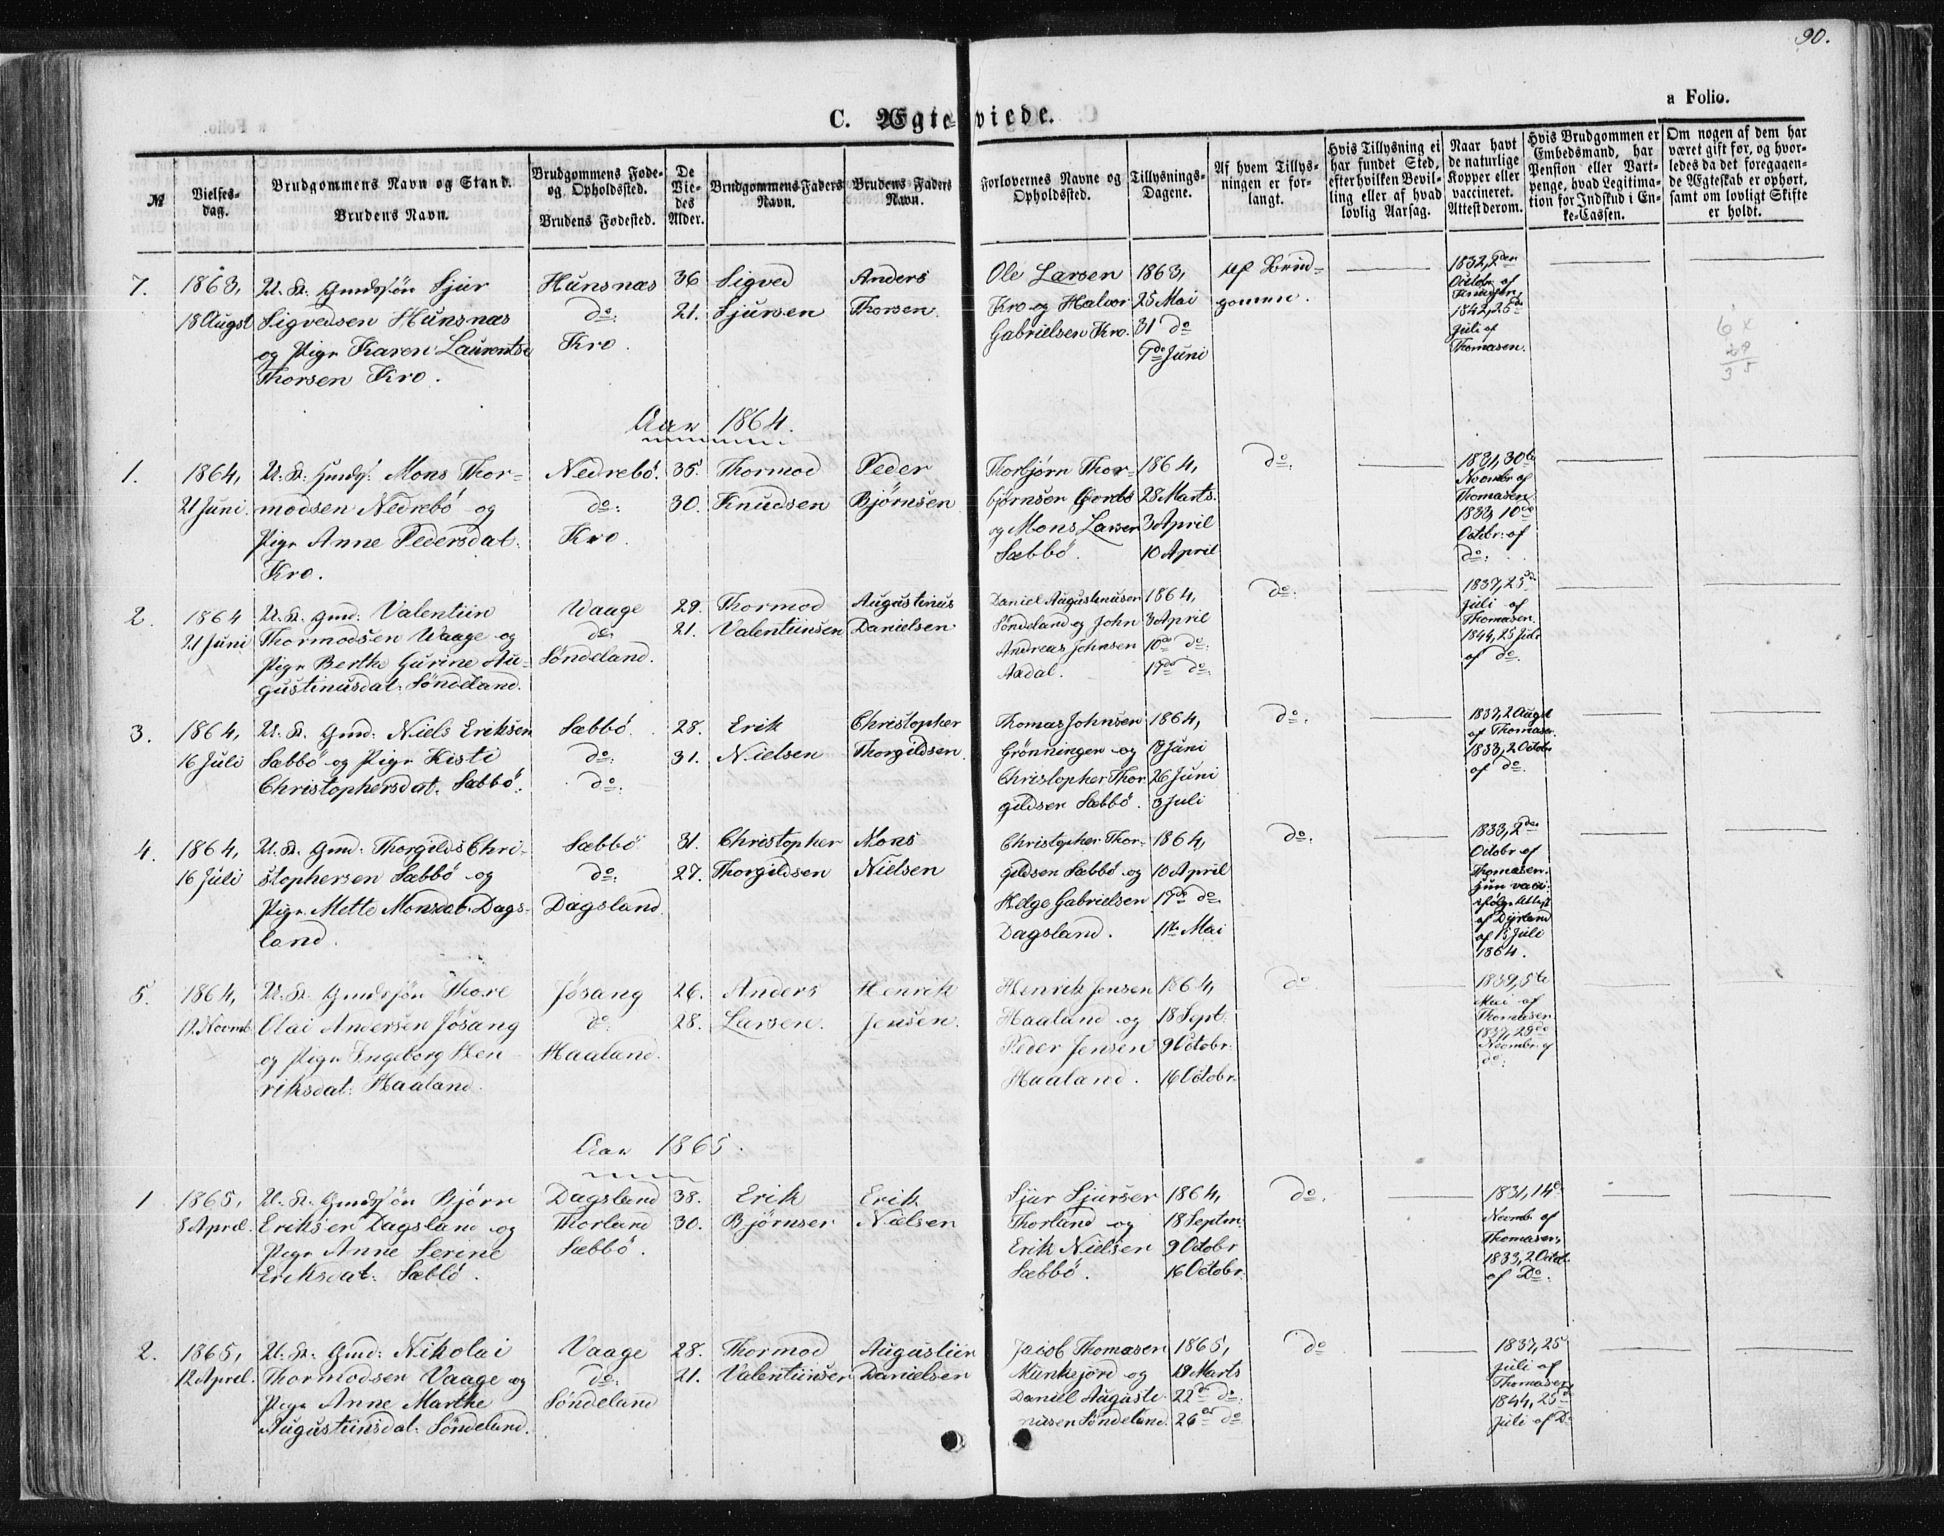 90.
a Folio.
C. Ægteviede.
№
Vielses-
dag.
Brudgommens Navn og Stand.
Brudens Navn.
Brudgommens Føde-
og Opholdssted.
Brudens Fødested.
De
Vie-
des
Alder.
Brudgommens Faders
Navn.
Brudens Faders
Navn.
Forlovernes Navne og
Opholdssted.
Tillysnings-
Dagene.
Af hvem Tillys-
ningen er for-
langt.
Hvis Tillysning ei
har fundet Sted,
efter hvilken Bevil-
ling eller af hvad
lovlig Aarsag.
Naar havt
de naturlige
Kopper eller
vaccineret.
Attest derom.
Hvis Brudgommen er
Embedsmand, har
Pension eller Vart-
penge, hvad Legitima-
tion for Indskud i En-
ke-Cassen.
Om nogen af dem har
været gift før, og hvor-
ledes da det foregaaen-
de Ægteskab er ophørt,
samt om lovligt Skifte
er holdt.
7.
1863,
18 Augst
U. K. Gmdsjön Sjur
Sigvedsen Hunsnæs
og Pige Karen Laurentse
Thorsen Kro.
Hunsnæs
do:
Kro.
36
21.
Sigved
Sjursen
Anders
Thorsen.
Ole Larsen
Kro og Halvor
Gabrielsen Kro.
1863,
25 Mai
31 do
7de Juni
af Brud-
gommen.
1832, 2den
Octobr. af
Knudsen,
1842, 25de
Juli af
Thomasen.
6 x
29
3 5
Aar 1864.
1.
1864,
21 Juni.
U. K. Gmds: Mons Thor-
modsen Nedrebö og
Pige Anne Pedersdat.
Kro.
Nedrebö.
do:
Kro.
35.
30.
Thormod
Knudsen
Peder
Bjørnsen
Thorbjørn Thor-
bjørnsen
og Mons Larsen
Sæbbö.
1864,
28 Marts.
3 April
10 April
do.
1831, 30te
Novmbr af
Thomasen
1833, 10de
Octbr: af
do:
2.
1864
21 Juni
U. K. Gmd: Valentiin
Thormodsen Waage og
Pige Berthe Gurine Au-
gustinusdat: Söndeland.
Waage
do:
Söndeland.
29.
21.
Thormod
Valentiinsen
Augustinus
Danielsen
Daniel Augustinusen
Söndeland og John
Andreas Johnsen
Aadal.
1864,
3 April
10de do:
17de do:
do:
1837, 25de
Juli af
Thomasen.
1844, 25 Juli
af do.
3.
1864,
16 Juli
U. K. Gmd: Niels Eriksen
Sæbbö og Pige Kisti
Christophersdat. Sæbbö.
Sæbbö.
do:
do:
28.
31.
Erik
Nielsen
Christopher
Thorgildsen.
Thomas Johnsen
Grönningen og
Christopher Thor-
gildsen Sæbbö.
1864,
Juni
26 Juni
3 Juli
do:
1837, 2 Augst
af Thomasen.
1833, 2 Octobr
af do.
4.
1864,
16 Juli
U. K. Gmd: Thorgilds Chri-
stophersen Sæbbö og
Pige Mette Monsdat. Dags-
land.
Sæbbö
do:
Dagsland.
31.
27.
Christopher
Thorgildsen
Mons
Nielsen
Christopher Thor-
gildsen Sæbbö og
Helge Gabrielsen
Dagsland.
1864,
10 April
17de do.
1ste Mai
do.
1833, 2den
Octobr af
Thomasen.
Hun vacc:
ifølge Attest
af Dyrland
af 15 Juli
1864.
5.
1864,
Novmb.
U. K. Gmdsjön Thore
Olai Andersen Jösang
og Pige Ingeborg Hen-
riksdat: Haaland.
Jösang
do:
Haaland.
26.
28.
Anders
Larsen.
Henrik
Jensen.
Henrik Jensen
Haaland og
Peder Jensen
Haaland.
1864,
18 Sept.
9 Octobr.
16 Octobr.
do
1839, 5te
Mai af
Thomasen
1837, 29de
Novmbr. af
do:
Aar 1865.
1
1865,
8 April.
U. K. Gmdsjön Bjørn
Eriksen Dagsland og
Pige Anne Serine
Eriksdat: Sæbbö.
Dagsland
Thorland
Sæbbö.
38.
30.
Erik
Bjørnsen
Erik
Nielsen
Sjur Sjursen
Thorland og
Erik Nielsen
Sæbbö.
1864,
18 Septm
9 Octobr
16 Octobr.
do.
1831, 14de
Novmb. af
Thomasen,
1833, 2 Octbr.
af Do.
2.
1865,
12 April.
U. K. Gmd: Nikolai
Thormodsen Vaage og
Pige Anne Marthe
Augustiinsdat: Söndeland.
Vaage
do:
Söndeland
28.
21.
Thormod
Valentiinsen
Augustiin
Danielsen
Jacob Thomasen
Munkejord og
Daniel Augusti-
nusen Söndeland.
1865,
19 Marts
22de do:
26de do
do
1837, 25
Juli af
Thomasen
1844, 25de
Juli af Do